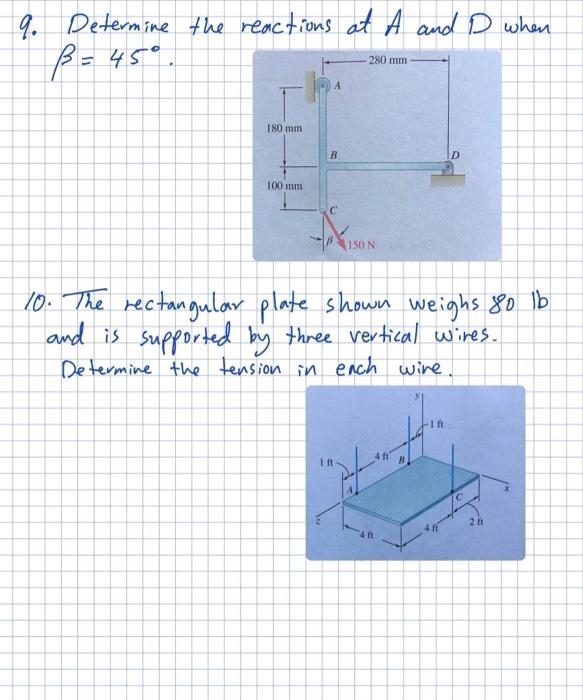 9. Determine the reactions at A and D when
β = 45°.
280 mm
A
180 mm
B
D
100 mm
C
β
150 N
10. The rectangular plate shown weighs 80 lb
and is supported by three vertical wires.
Determine the tension in each wire.
y
1 ft
4 ft
B
1 ft
A
x
C
z
2 ft
4 ft
4 ft